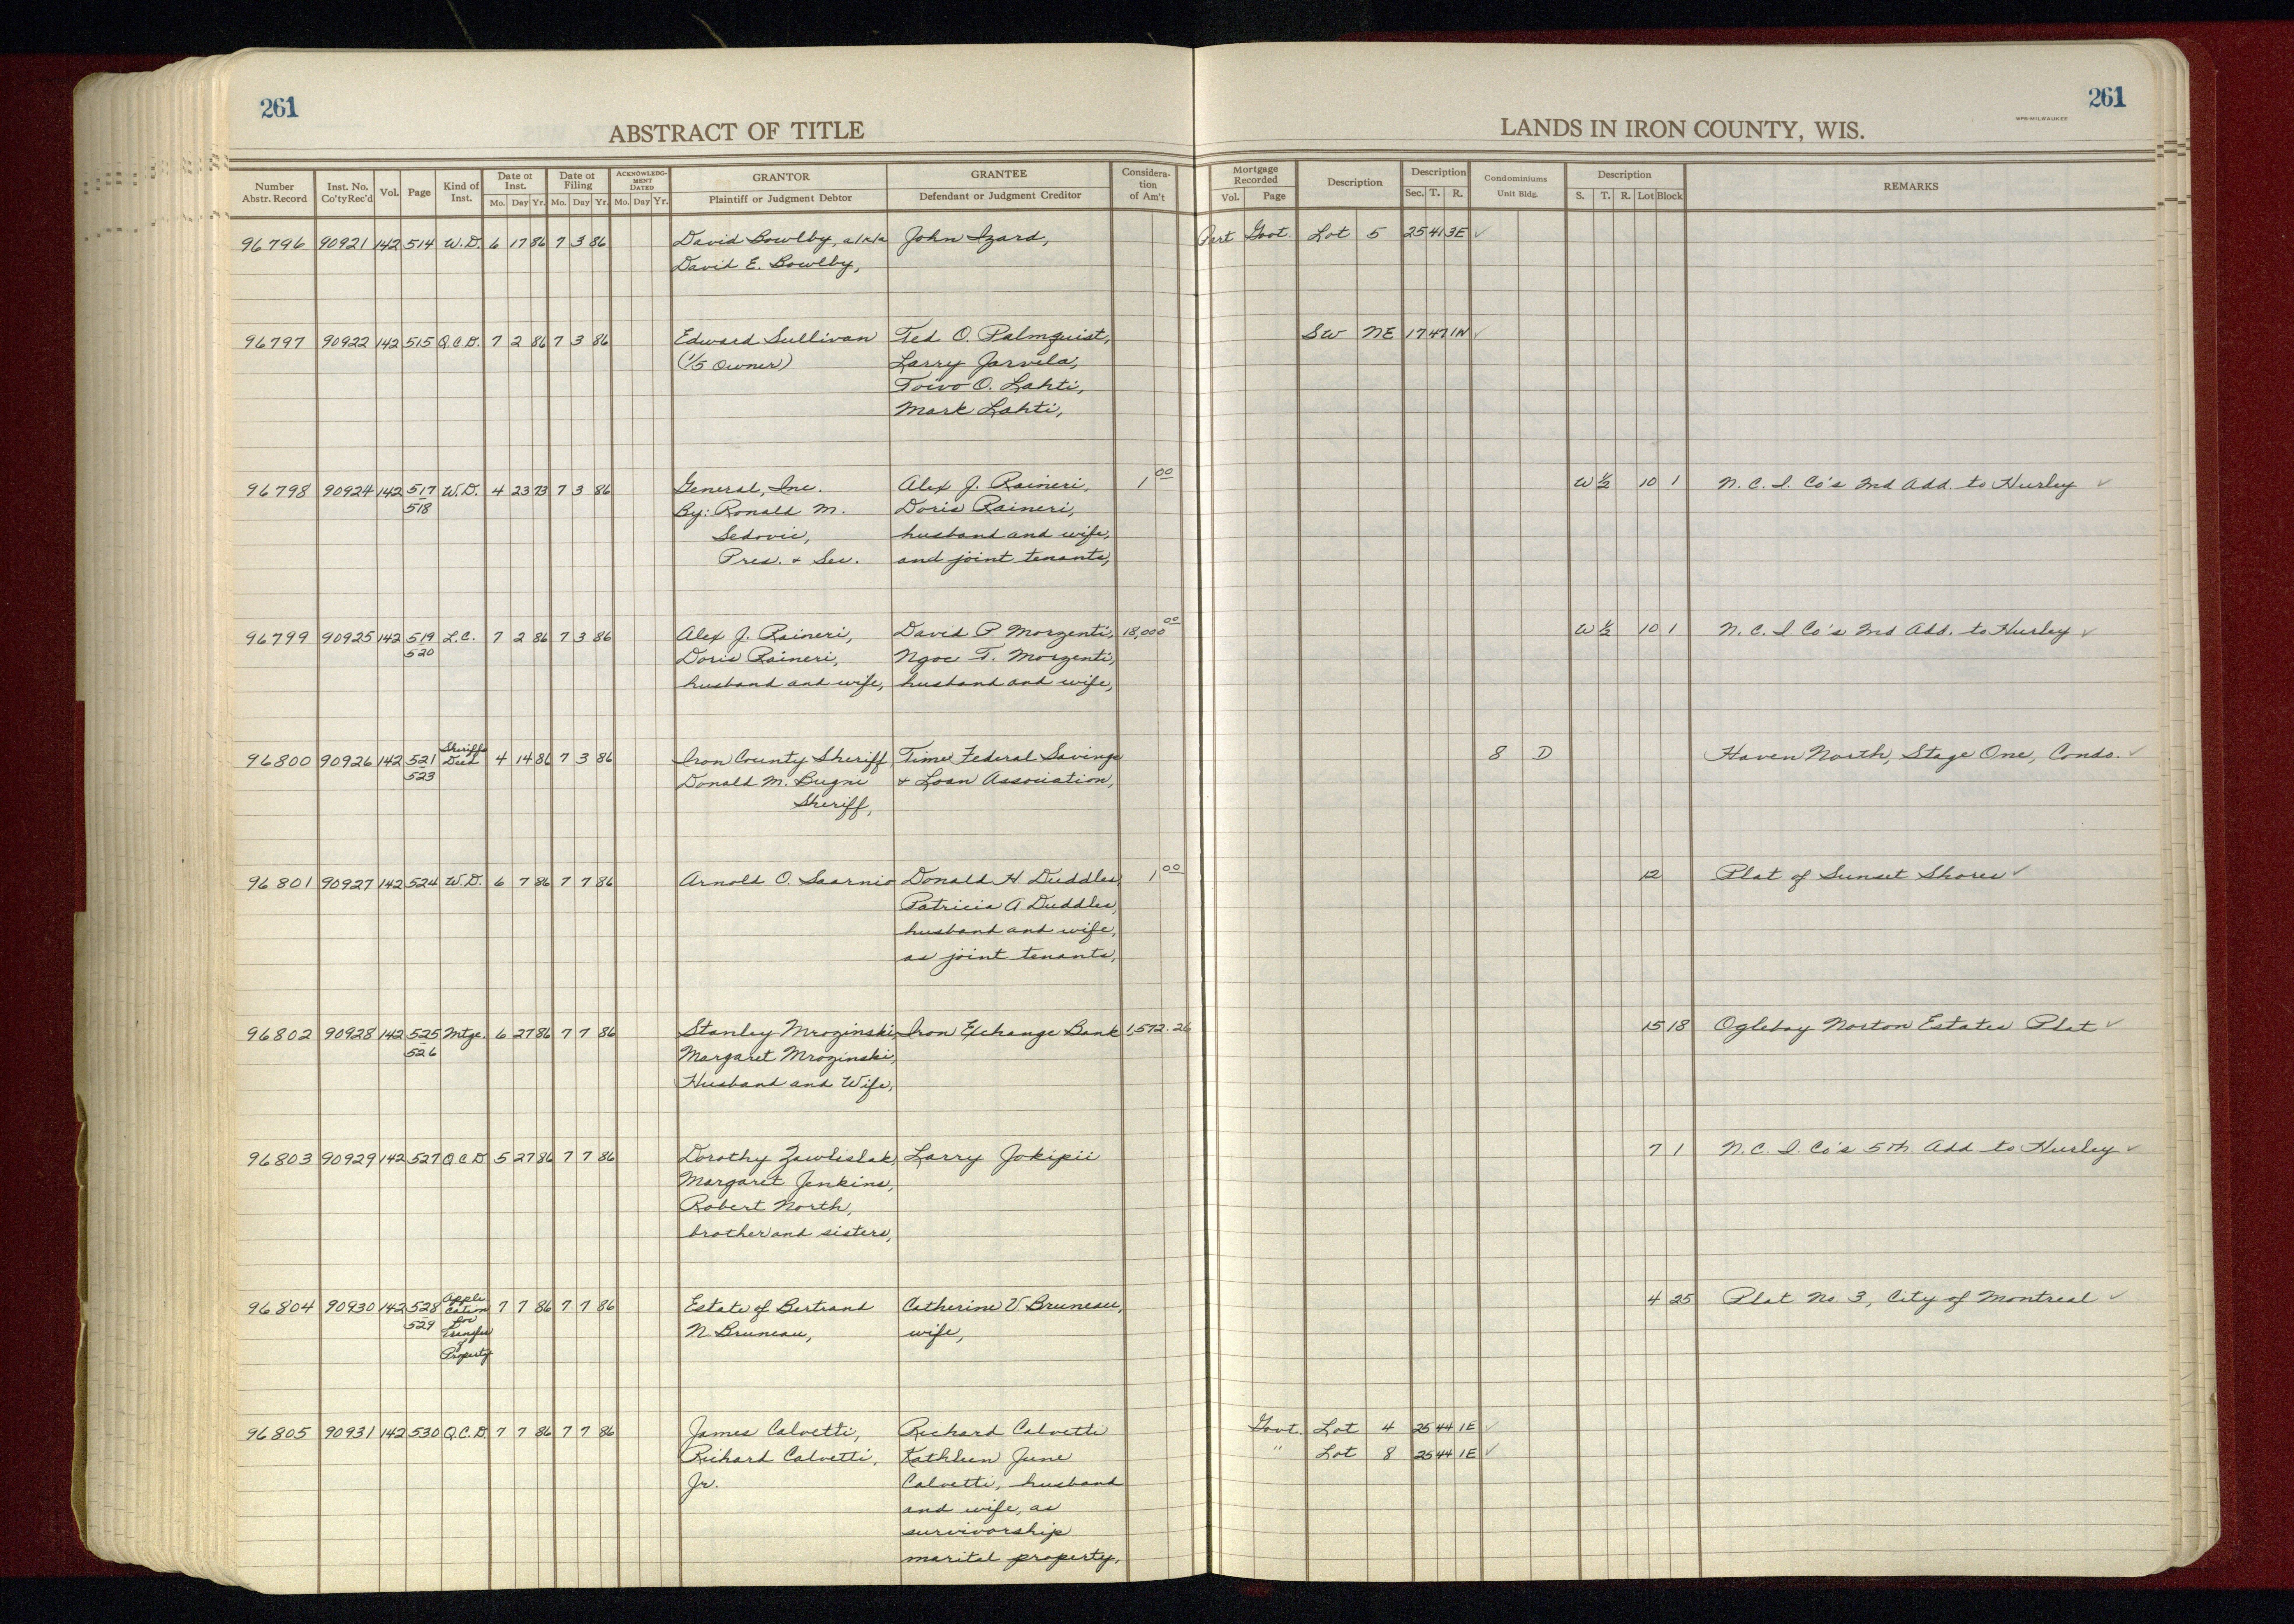 261
261
ABSTRACT OF TITLE
LANDS IN IRON COUNTY, WIS.
MPB-MILWAUKEE
Number Abstr. Record Inst. No. Co'ty Rec'd Vol. Page Kind of Inst. Date of Inst. Mo. Day Yr. Date of Filing Mo. Day Yr. ACKNOWLEDGMENT DATED Mo. Day Yr. GRANTOR Plaintiff or Judgment Debtor GRANTEE Defendant or Judgment Creditor Consideration of Am't Mortgage Recorded Vol. Page Description Description Sec. T. R. Condominiums Unit Bldg. Description S. T. R. Lot Block REMARKS
96796 90921 142 514 W.D. 6 17 86 7 3 86 David Bowlby, a/k/a John Izard, Part Govt. Lot 5 25 41 3E ✓
David E. Bowlby,
96797 90922 142 515 Q.C.D. 7 2 86 7 3 86 Edward Sullivan Ted O. Palmquist, SW NE 17 47 1N ✓
(1/5 Owner) Larry Jarvela,
Toivo O. Lahti,
Mark Lahti,
96798 90924 142 517 W.D. 4 23 73 7 3 86 General, Inc. Alex J. Raineri, 1 00 W ½ 10 1 N. C. I. Co's 2nd Add. to Hurley ✓
518 By: Ronald M. Doris Raineri,
Sedovic, husband and wife,
Pres. + Sec. and joint tenants,
96799 90925 142 519 L.C. 7 2 86 7 3 86 Alex J. Raineri, David P. Morzenti, 18,000 00 W ½ 10 1 N. C. I. Co's 2nd Add. to Hurley ✓
520 Doris Raineri, Ngoc T. Morzenti,
husband and wife, husband and wife,
96800 90926 142 521 Sheriffs Deed 4 14 86 7 3 86 Iron County Sheriff Time Federal Savings 8 D Haven North, Stage One, Condo. ✓
523 Donald M. Bugni + Loan Association,
Sheriff,
96801 90927 142 524 W.D. 6 7 86 7 7 86 Arnold O. Saarnio Donald H Duddles, 1 00 12 Plat of Sunset Shores ✓
Patricia A Duddles,
husband and wife,
as joint tenants,
96802 90928 142 525 Mtge. 6 27 86 7 7 86 Stanley Mrozinski, Iron Exchange Bank 1,572.26 15 18 Oglebay Norton Estates Plat ✓
526 Margaret Mrozinski,
Husband and Wife,
96803 90929 142 527 Q.C.D 5 27 86 7 7 86 Dorothy Zawlislak, Larry Jokipii 7 1 N. C. I. Co's 5th Add to Hurley ✓
Margaret Jenkins,
Robert North,
brother and sisters,
96804 90930 142 528 Application for Transfer of Property 7 7 86 7 7 86 Estate of Bertrand Catherine V. Bruneau, 4 25 Plat No 3, City of Montreal ✓
529 N. Bruneau, wife,
96805 90931 142 530 Q.C.D. 7 7 86 7 7 86 James Calvetti, Richard Calvetti Govt. Lot 4 25 44 1E ✓
Richard Calvetti, Kathleen June " Lot 8 25 44 1E ✓
Jr. Calvetti, husband
and wife, as
survivorship
marital property,